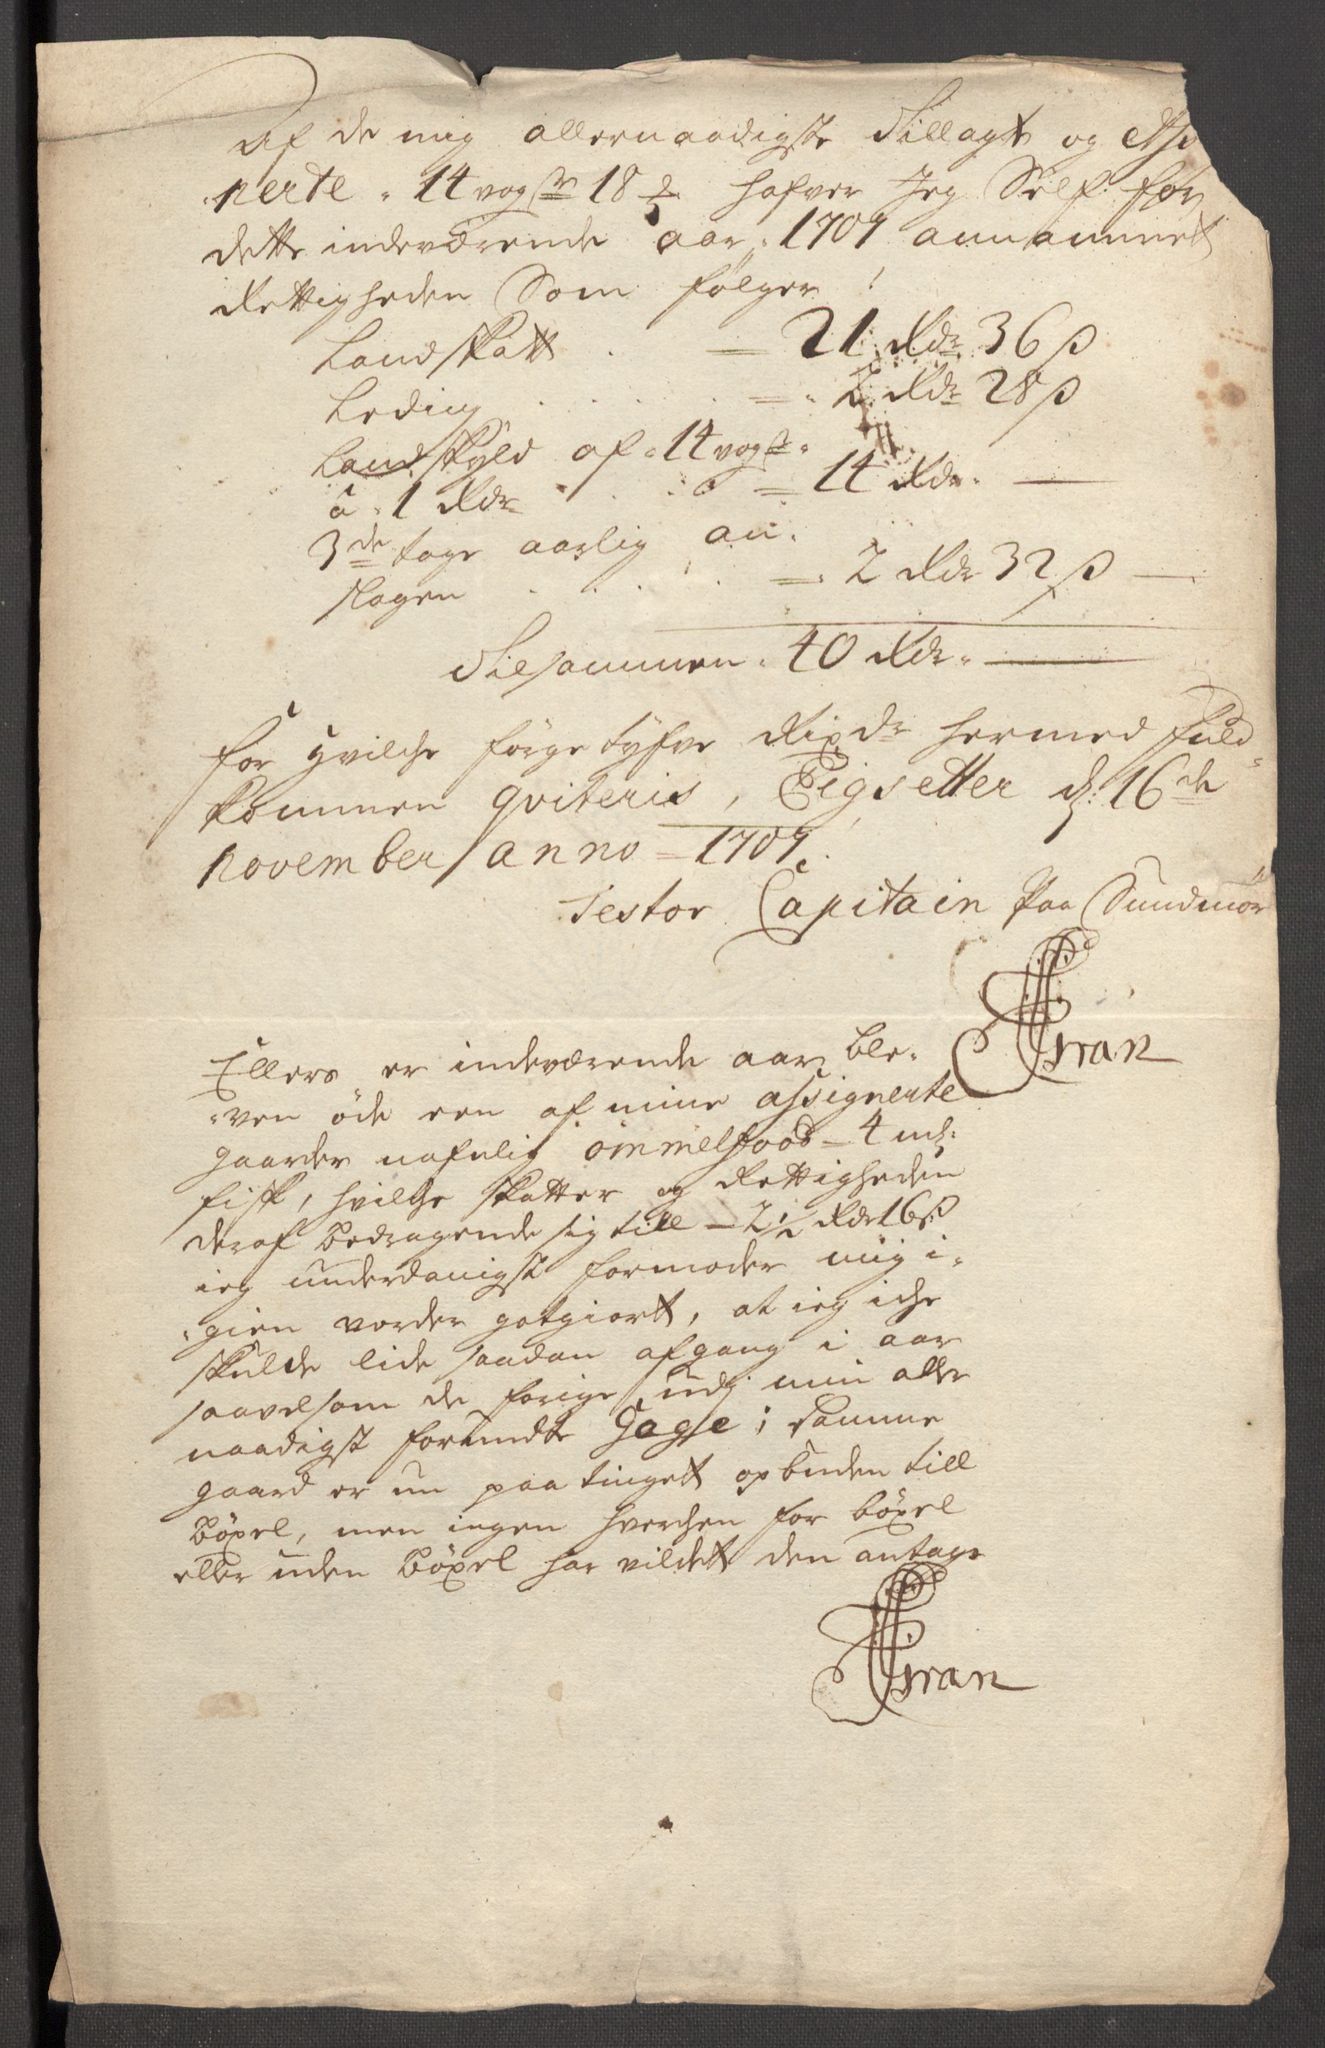 Af de mig allernaadigste Tillagt og Assig
nerte 14 vog 18 hafver Jeg Self for
dette indeværende aar 1707 annammet
Rettigheden Som følger!
Landskatt . = 21 Rdr 36 ß
Leding . . . . = 2 Rdr 28 ß
Landskyld af 14 vog
â 1 Rdr . . . = 14 Rdr —
3de tage aarlig an
slagen . . . = 2 Rdr 32 ß —
Tilsammen 40 Rdr —
for hvilche förgetyfve Rixdr hermed fuld
kommen qviteris, Eigsetter d: 16de
november anno 1707.
Testor Capitain Paa Sundmör
Ellers er indeværende aar ble-
ven öde een af mine assignerte
gaarder nafnlig ommelfood 4 mk:
fisk, hvilche skatter og Rettigheden
deraf bedragende sig till 2½ Rdr 16 ß
ieg underdanigst formoder mig i-
gien vorder gotgiort, at ieg iche
skulde lide saadan afgang i aar
saavelsom de forige udj min aller
naadigst forundte Gage; Samme
gaard er nu paa tingett opbuden till
böxel, men ingen hverchen for böxel
eller uden böxel har vildett den antage